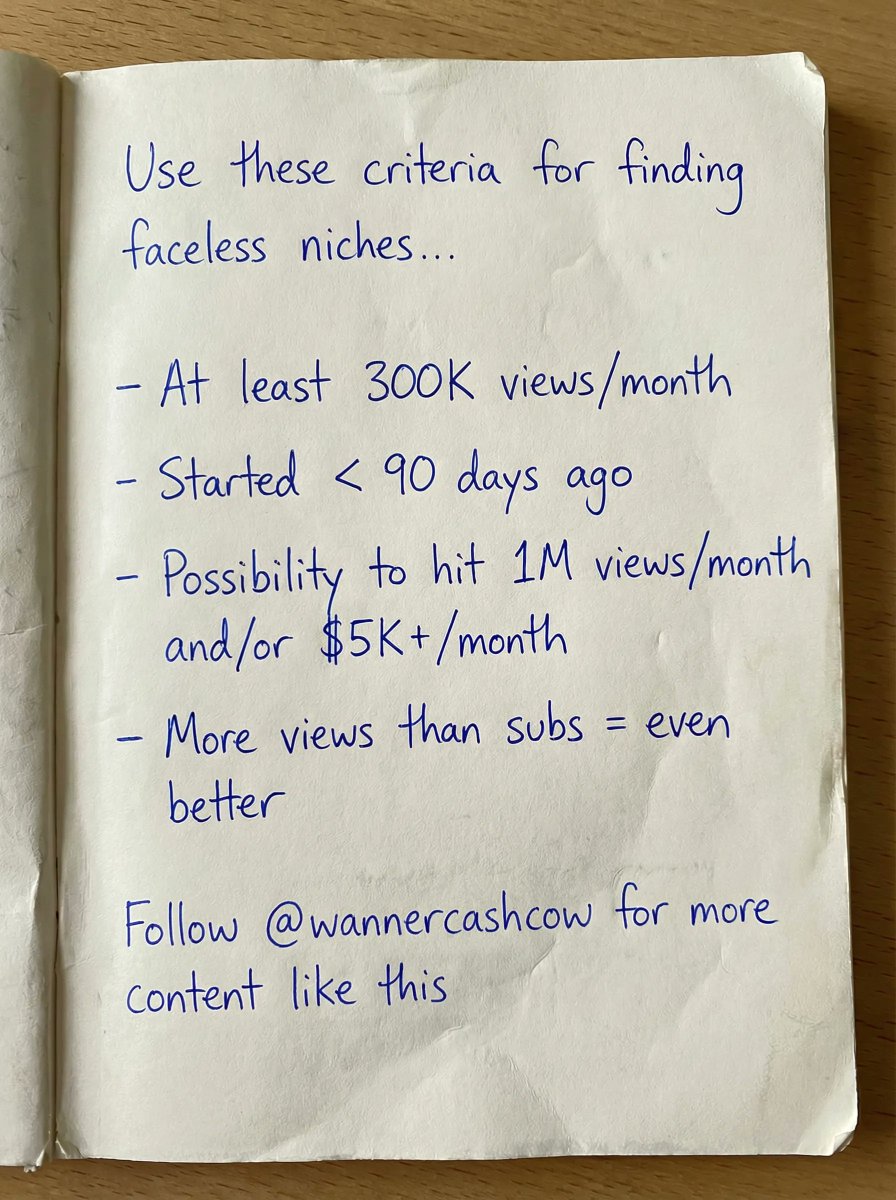 Use these criteria for finding
faceless niches...
- At least 300K views/month
- Started < 90 days ago
- Possibility to hit 1M views/month
and/or $5K+/month
- More views than subs = even
better
Follow @wannercashcow for more
content like this